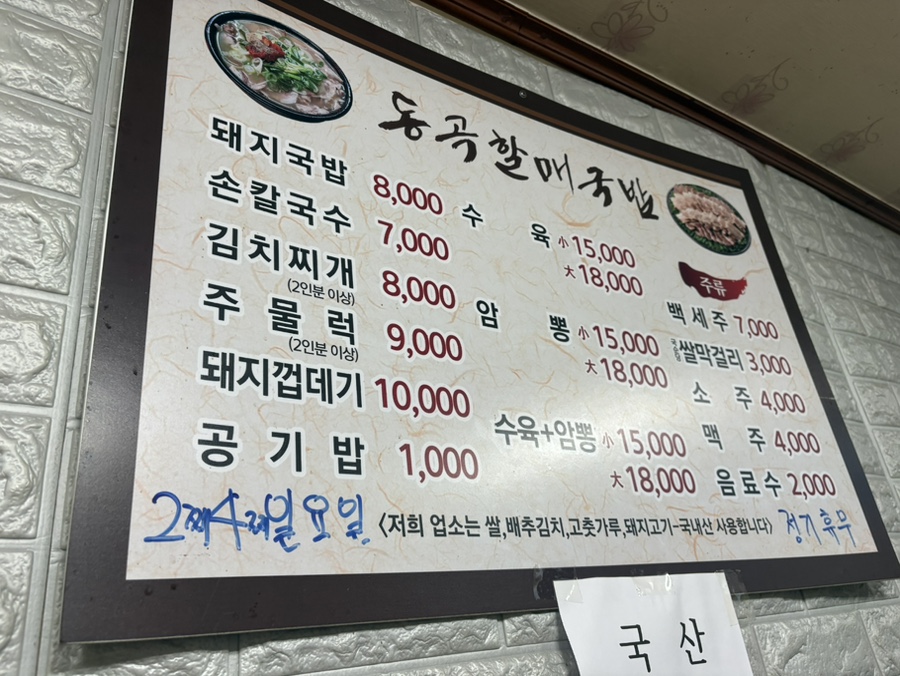 동곡할매국밥
돼지국밥 8,000
손칼국수 7,000
김치찌개 8,000
(2인분 이상)
주물럭 9,000
(2인분 이상)
돼지껍데기 10,000
공기밥 1,000
수육 小 15,000
大 18,000
암뽕 小 15,000
大 18,000
수육+암뽕 小 15,000
大 18,000
주류
백세주 7,000
쌀막걸리 3,000
소주 4,000
맥주 4,000
음료수 2,000
2째4째일요일
<저희 업소는 쌀,배추김치,고춧가루,돼지고기-국내산 사용합니다>
정기휴무
국산